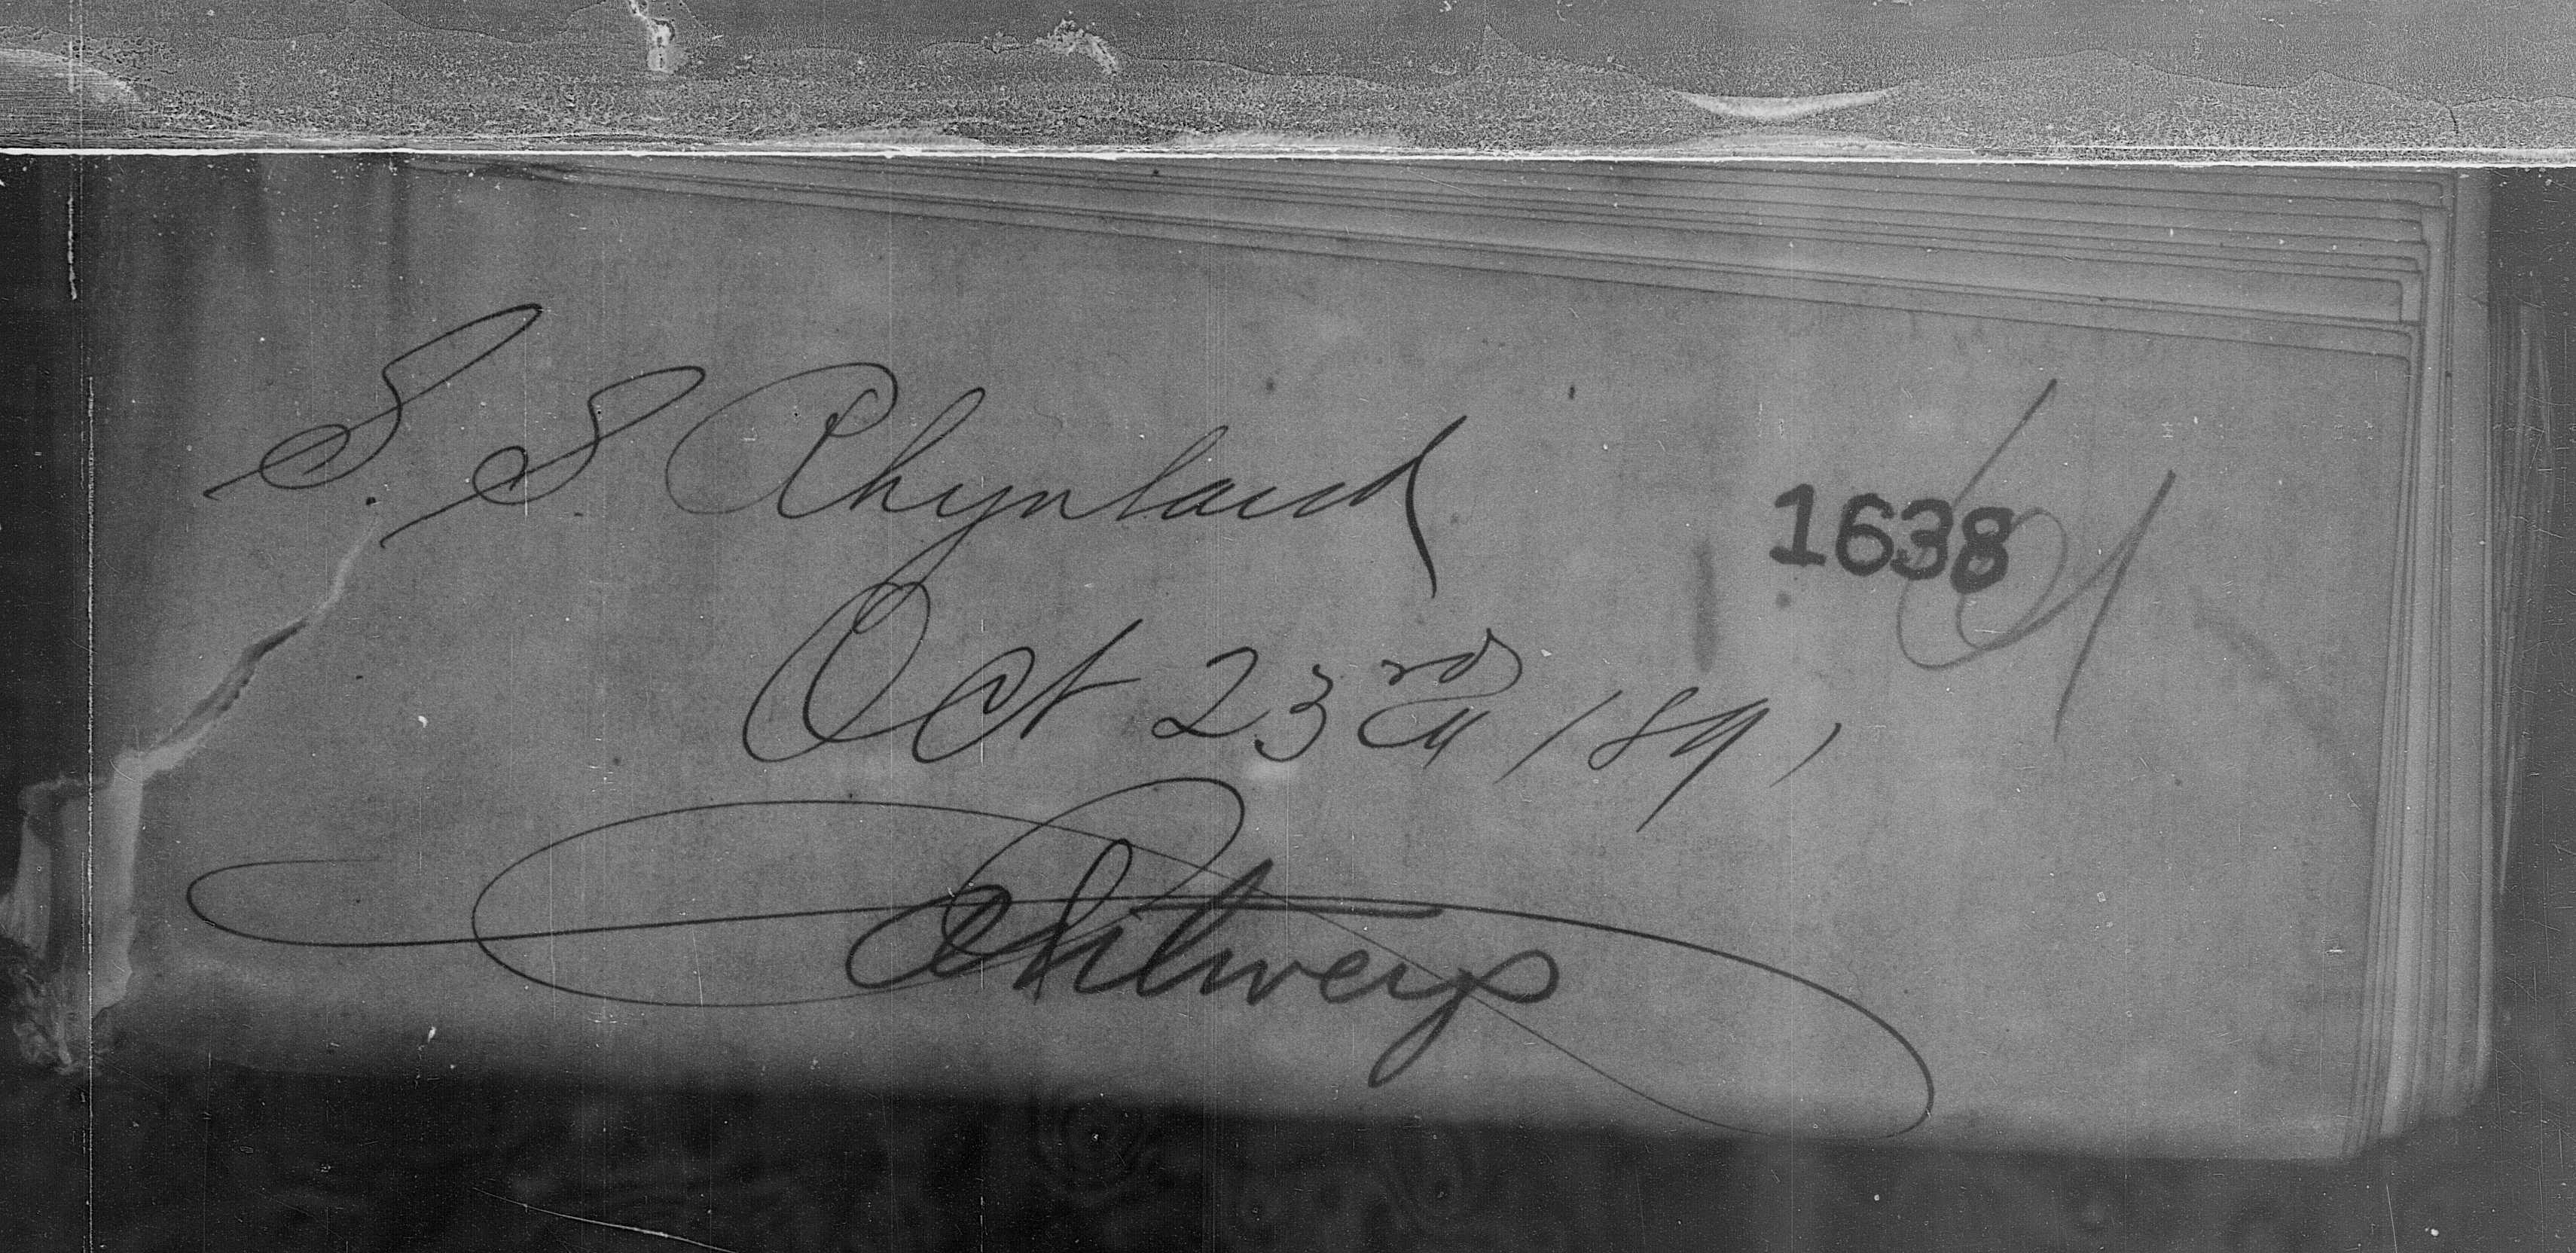 S. S. Rhynland
1638
Oct 23rd 1891
Antwerp